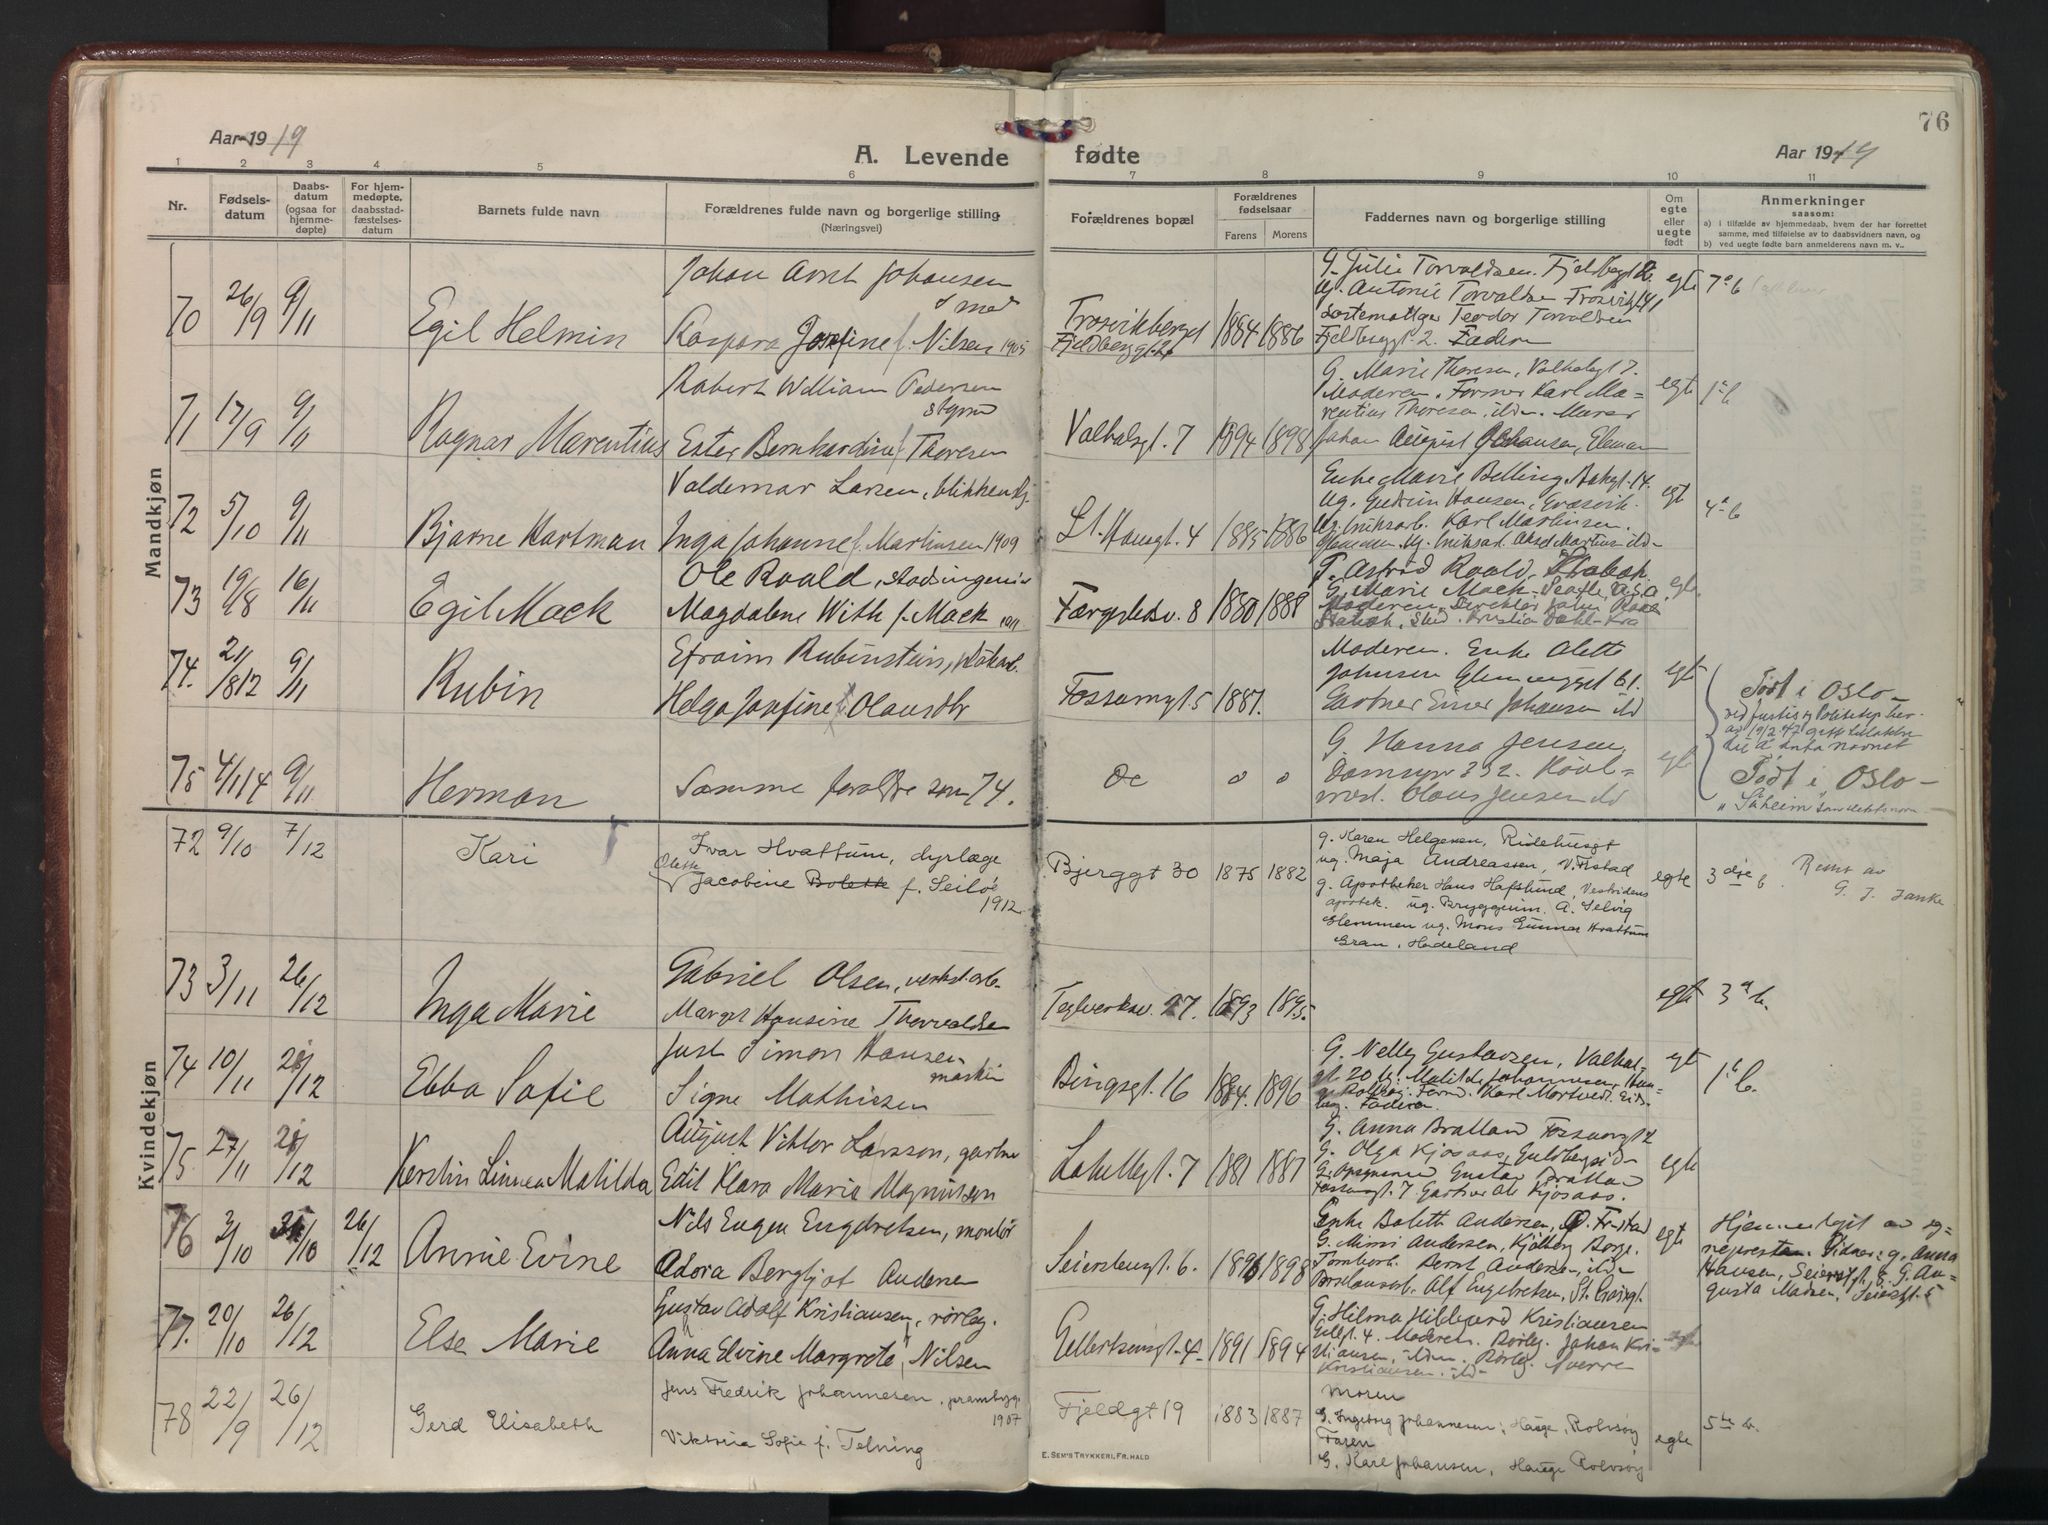 76
Aar 1919
A. Levende fødte
Aar 1919
1 2 3 4 5 6 7 8 9 10 11
Nr.
Fødselsdatum
Daabsdatum (ogsaa for hjemmedøpte)
For hjemmedøpte, daabsstadfæstelsesdatum
Barnets fulde navn
Forældrenes fulde navn og borgerlige stilling
(Næringsvei)
Forældrenes bopæl
Forældrenes fødselsaar
Farens Morens
Faddernes navn og borgerlige stilling
Om egte eller uegte født
Anmerkninger
saasom:
a) i tilfælde av hjemmedaab, hvem der har forrettet
samme, med tilføielse av to daabsvidners navn, og
b) ved uegte fødte barn anmelderens navn m. v.
Mandkjøn
70 26/9 9/11 Egil Helmin
Johan Arnt Johansen
smed
Kaspara Josefine f. Nilsen 1905
Trosvikberget
Fjeldberggt. 2
1884 1886
G. Julie Torvaldsen. Fjeldbergt 2.
Ug. Antonie Torvaldsen Trosvikgt 41
Teodor Torvaldsen
Fjeldberggt. 2. Faderen
egte
71 17/9 9/11 Ragnar Marentius
Robert William Pedersen
styrm
Ester Bernhardine f. Thoresen
Valhalsgt. 7
1894 1898
G. Marie Thoresen, Valhalsgt 7.
Moderen. Former Karl Ma-
rentius Thoresen, ibdm. Murer
Johan August Johansen, Glemmen
egte
72 5/10 9/11 Bjarne Hartman
Valdemar Larsen, blikkensl.
Inga Johanne f. Martinsen 1909
St. Hansgt. 4
1885 1886
Enke Marie Belling, Bakgt. 14.
Ug. Gudrun Hansen, Græsvik.
Ug. Karl Martinsen.
egte
4de b
73 19/8 16/11 Egil Mack
Ole Roald, stadsingeniør
Magdalene With f. Mack 1911
Færgestedsv. 8
1880 1888
F. Astrid Roald, Stabæk.
G. Marie Mack, Seatle, U.S.A.
Moderen. Direktør John Roald
Stabæk. Stud. Kristian Dahl - Kra
egte
74. 21/8 12 9/11 Rubin
Efraim Rubinstein, pladearb.
Helga Josefine f. Olausdtr
Fossumgt. 5
1887.
Moderen. Enke Olette
Johansen Glemmengt 61.
Gartner Einar Johansen ibd
egte
Født i Oslo -
75 4/11 14 9/11 Herman
Samme forældre som 74.
Do
" "
G. Hanna Jensen
Olaus Jensen ibd
egte
Født i Oslo -
Kvindekjøn
72 9/10 7/12 Kari
Ivar Hvattum, dyrlæge
Olette
Jacobine Bolette f. Seilöe
1912
Bjerggt 30
1875 1882
g. Karen Helgesen, Ridehuset
ug. Maja Andreassen, V. Frstad
g. Apotheker Hans Hafslund, Vestsidens
apotek. ug. Bryggeium. A. Selvig
Glemmen ug. Mons Gunnar Hvattum
Gran, Hadeland
egte
3dje b.
G. J. Janke
73 3/11 26/12 Inga Marie
Gabriel Olsen, verkst. arb.
Margit Hansine Thorvaldsen
Teglverksv. 27.
1893 1895
egte
3 b.
74 10/11 26/12 Ebba Sofie
Just Simon Hansen
maskin
Signe Mathisen
Bingsgt. 16
1884. 1896
G. Nelly Gustavsen, Valhal-
gt. 20 Ug. Matilde Johannesen, Hau-
ug. Faderen
egte
1ste b.
75 27/11 26/12 Kerstin Linnea Matilda
August Viktor Larsson, gartner
Edit Klara Maria Magnusson
Lahellegt. 7
1881 1887
G. Anna Bratland Fossumgt 2
G. Olga Kjosaas, Guldbergsid-
Gustav Bratland
Fossumgt. 7 Gartner Ole Kjosaas.
egte
76 3/10 31/10 26/12 Annie Evine
Nils Eugen Engebretsen, montør
Adora Bergljot Andersen
Seiersbergt. 6.
1896 1898
Enke Bolette Andersen, Ø. Frstad
G. Mimi Andersen, Kjølberg Borge.
Tomtearb. Bernt Andersen, ibdm
Alf Engebretsen, St. Croixgt.
egte
Hjemmedøpt av sog-
nepresten. Vidner: g. Anna
Hansen, Seierstgt. 8. G. Au-
gusta Madsen, Seierstgt. 5
77. 20/10 26/12 Else Marie
Gustav Adolf Kristiansen, rørleg.
Anna Elvine Margrete f. Nilsen
Gellertsensgt. 4.
1891 1894
G. Hilma Hildegard Kristiansen
Gellgt. 4. Moderen. Rørleg. Johan Kri-
stiansen, ibdm. Rørleg. Sverre
Kristiansen. ibd
egte
78 22/9 26/12 Gerd Elisabeth
Jens Fredrik Johannesen, prambygg.
1907
Viktoria Sofie f. Telning
Fjeldgt 19
1883 1887
Moren
G. Ingeborg Johannesen, Hauge, Rolvsøy
Faren
G. Karl Johansen, Hauge Rolvsøy
egte
5te b.
E. SEM'S TRYKKERI, FR.HALD